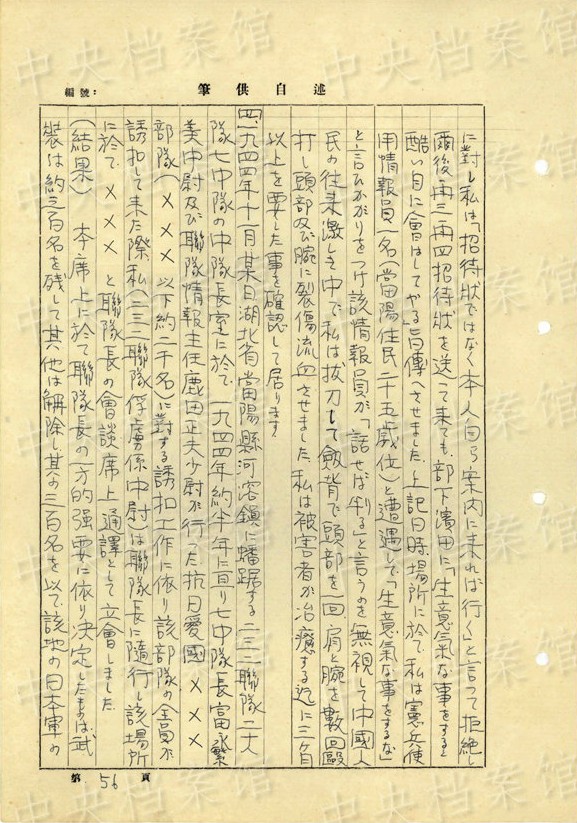 中央档案馆
編號：
筆供自述
に對し私は「招待狀ではなく本人自ら案内に来れば行く」と言って拒絶し
爾後再三再四招待狀を送って来ても、部下濱田に「生意氣な事をすると
酷い目に會はしてやる」旨傳へさせました。上記日時場所に於て私は憲兵使
用情報員一名(當陽住民二十五歳位)と遭遇して「生意氣な事をするな」
と言ひがかりをつけ該情報員が「話せば判る」と言うのを無視して中國人
民の往来激しき中で私は拔刀して劍背で頭部を一回肩と腕を數回毆
打し頭部及び腕に裂傷流血させました。私は被害者が治癒する迄に三ケ月
以上を要した事を確認して居ります
四、一九四四年十一月某日湖北省當陽縣河容鎮に蟠踞する二三二聯隊二大
隊七中隊の中隊長室に於て一九四四年約半年に亘り七中隊長富永繁
美中尉及び聯隊情報主任鹿田正夫少尉が行った抗日愛國×××
部隊(×××以下約二千名)に對する誘扣工作に依り該部隊の全員が
誘扣して来た際私(二三二聯隊俘虜係中尉)は聯隊長に隨行し該場所
に於て×××と聯隊長の會談席上通譯として立會しました
(結果) 本席上に於て聯隊長の一方的强要に依り決定したものは武
裝は約三百名を残して其他は解除し其の三百名を以て該地の日本軍の
第 56 頁